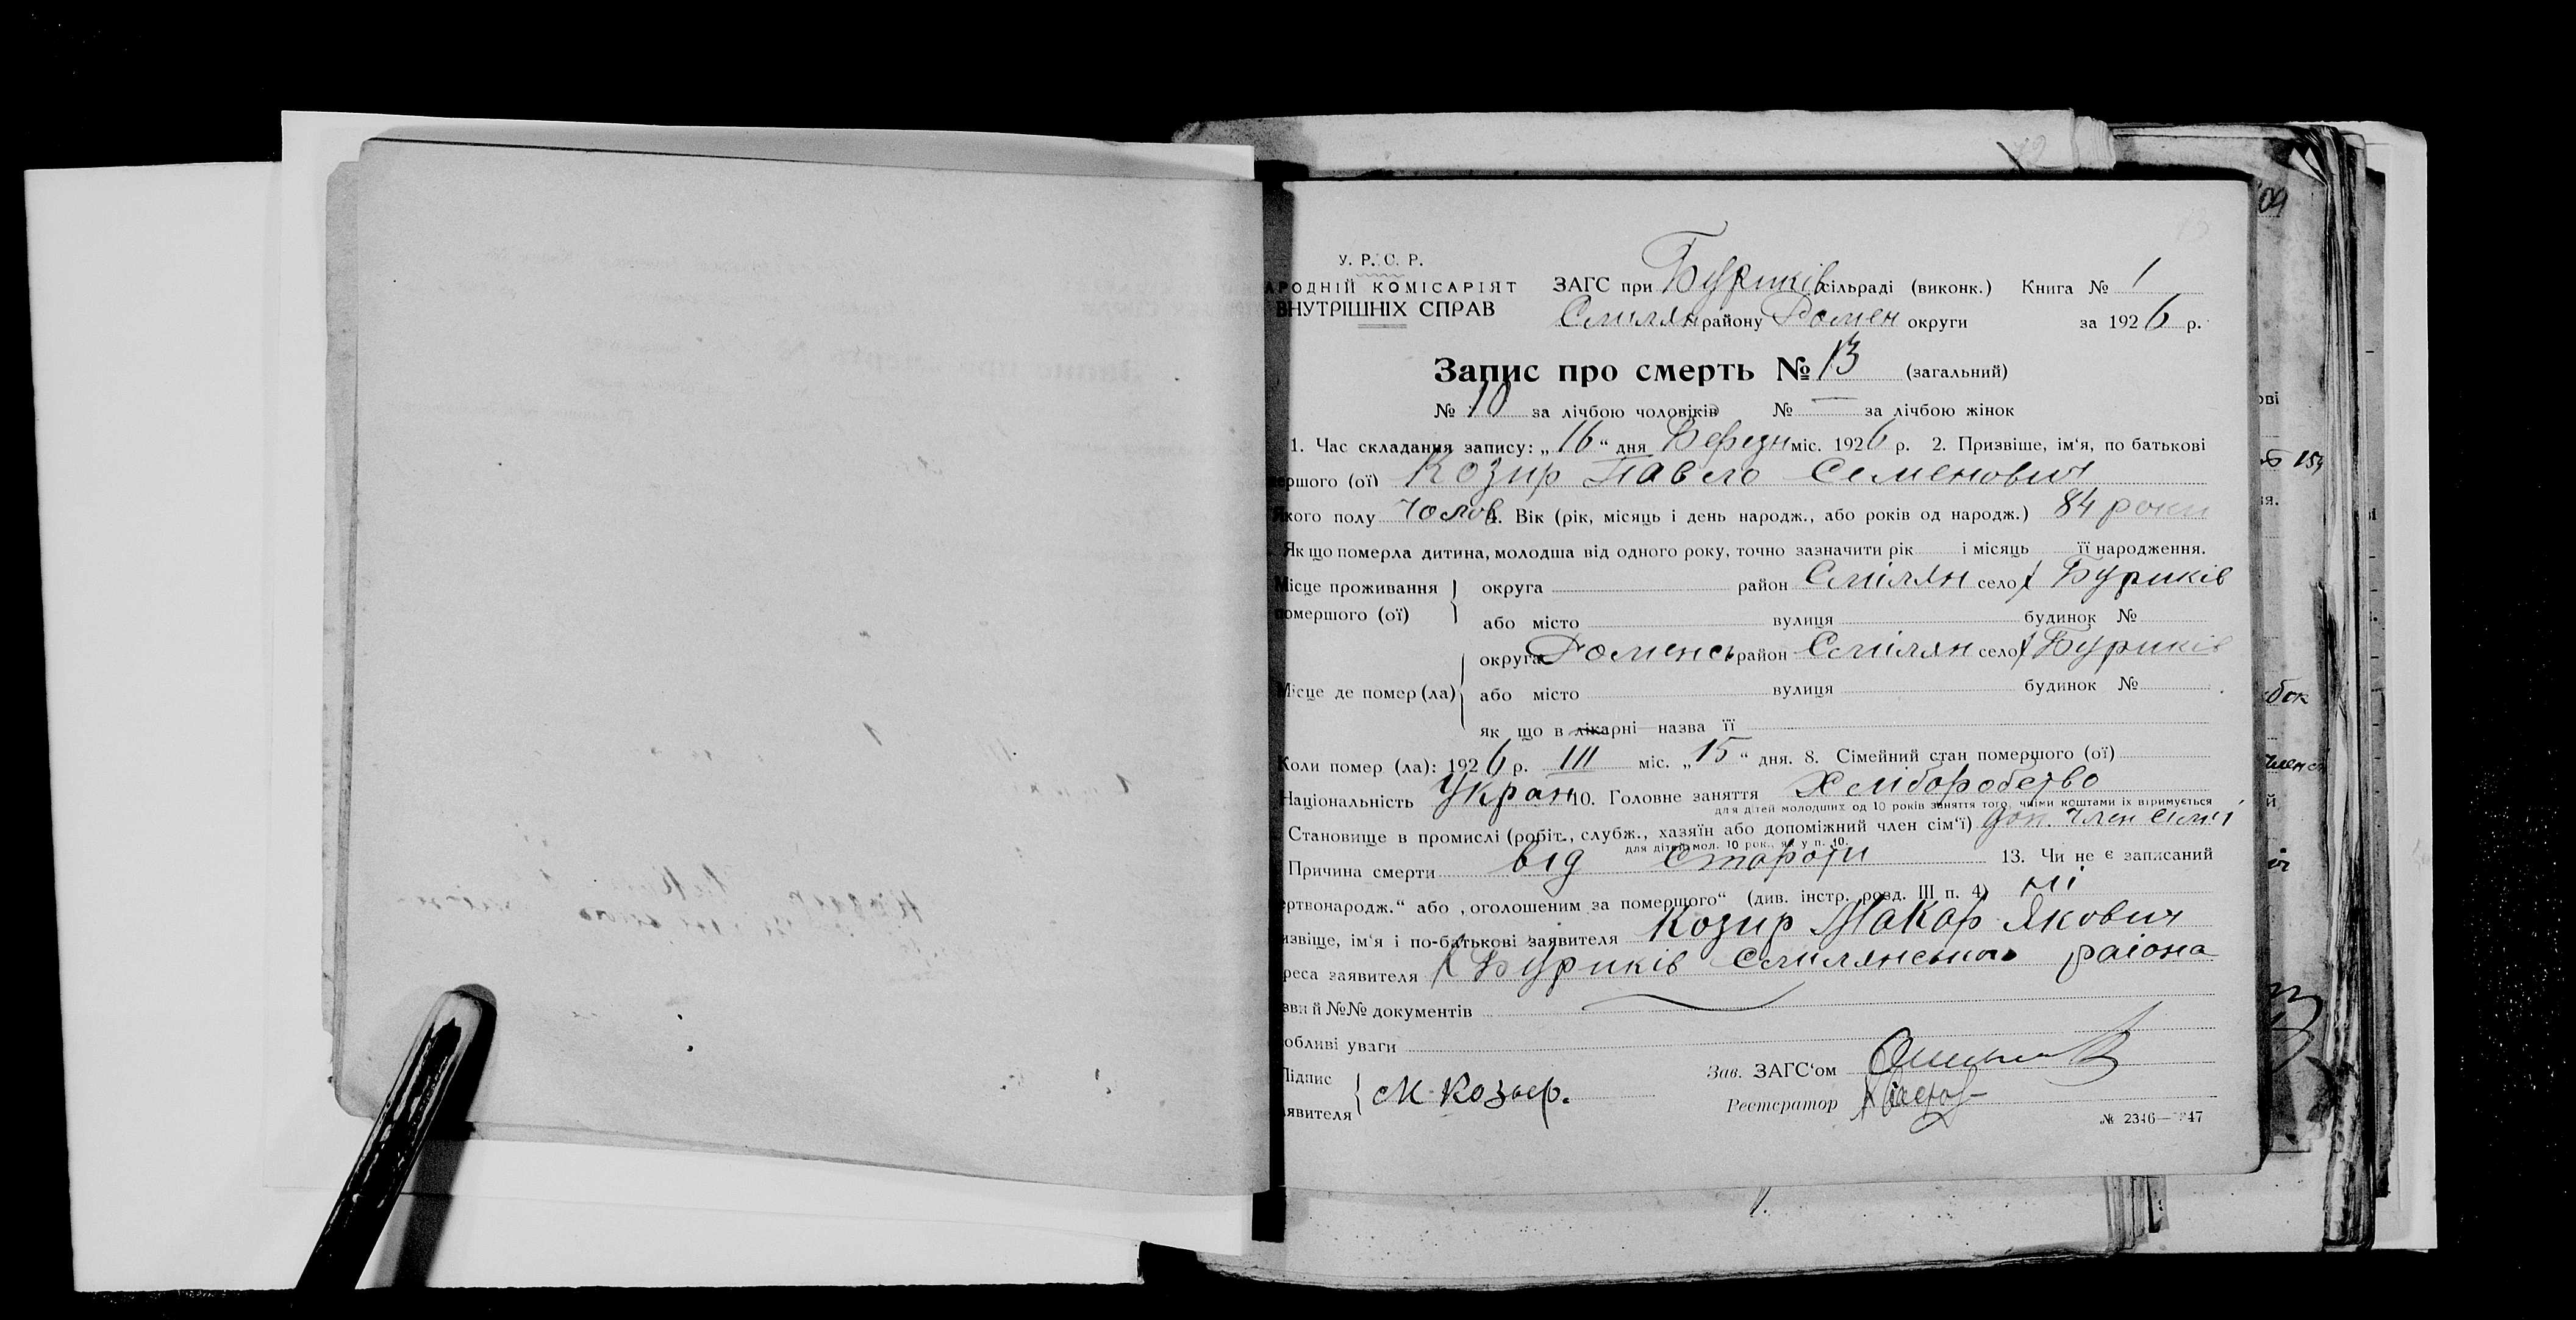 У. Р. С. Р.
АРОДНІЙ КОМІСАРІЯТ
ВНУТРІШНІХ СПРАВ
ЗАГС при Буриків сільраді (виконк.) Книга № 1
Смілян району Ромен округи за 1926 р.
Запис про смерть № 13 (загальний)
№ 10 за лічбою чоловіків № — за лічбою жінок
1. Час складання запису: „16“ дня Березн міс. 1926 р. 2. Призвіше, ім‘я, по батькові
ершого (ої) Козир Павло Семенович
якого полу чолов 4. Вік (рік, місяць і день народж., або років од народж.) 84 роки
Як що померла дитина, молодша від одного року, точно зазначити рік і місяць її народження.
Місце проживання
помершого (ої)
округа район Смілян село х Буриків
або місто вулиця будинок №
Місце де помер (ла)
округа Роменсь район Смілян село х Буриків
або місто вулиця будинок №
як що в лікарні назва її
Коли помер (ла): 1926 р. III міс. „15“ дня. 8. Сімейний стан помершого (ої)
Національність Укран 10. Головне заняття Хліборобство
для дітей молодших од 10 років заняття того, чиїми коштами їх втримується
Становище в промислі (робіт., слубж., хазяїн або допоміжний член сім‘ї) доп. член сімї
для дітей мол. 10 рок., як у п. 10.
Причина смерти від старости 13. Чи не є записаний
ертвонародж.“ або „оголошеним за померщого“ (див. інстр. розд. III п. 4) ні
извіще, ім‘я і по-батькові заявителя Козир Макар Якович
реса заявителя х Буриків Смилянського раіона
зви й №№ документів
обливі уваги
Підпис
аявителя
М Козыр.
Зав. ЗАГС‘ом
Реєстератор
№ 2346—